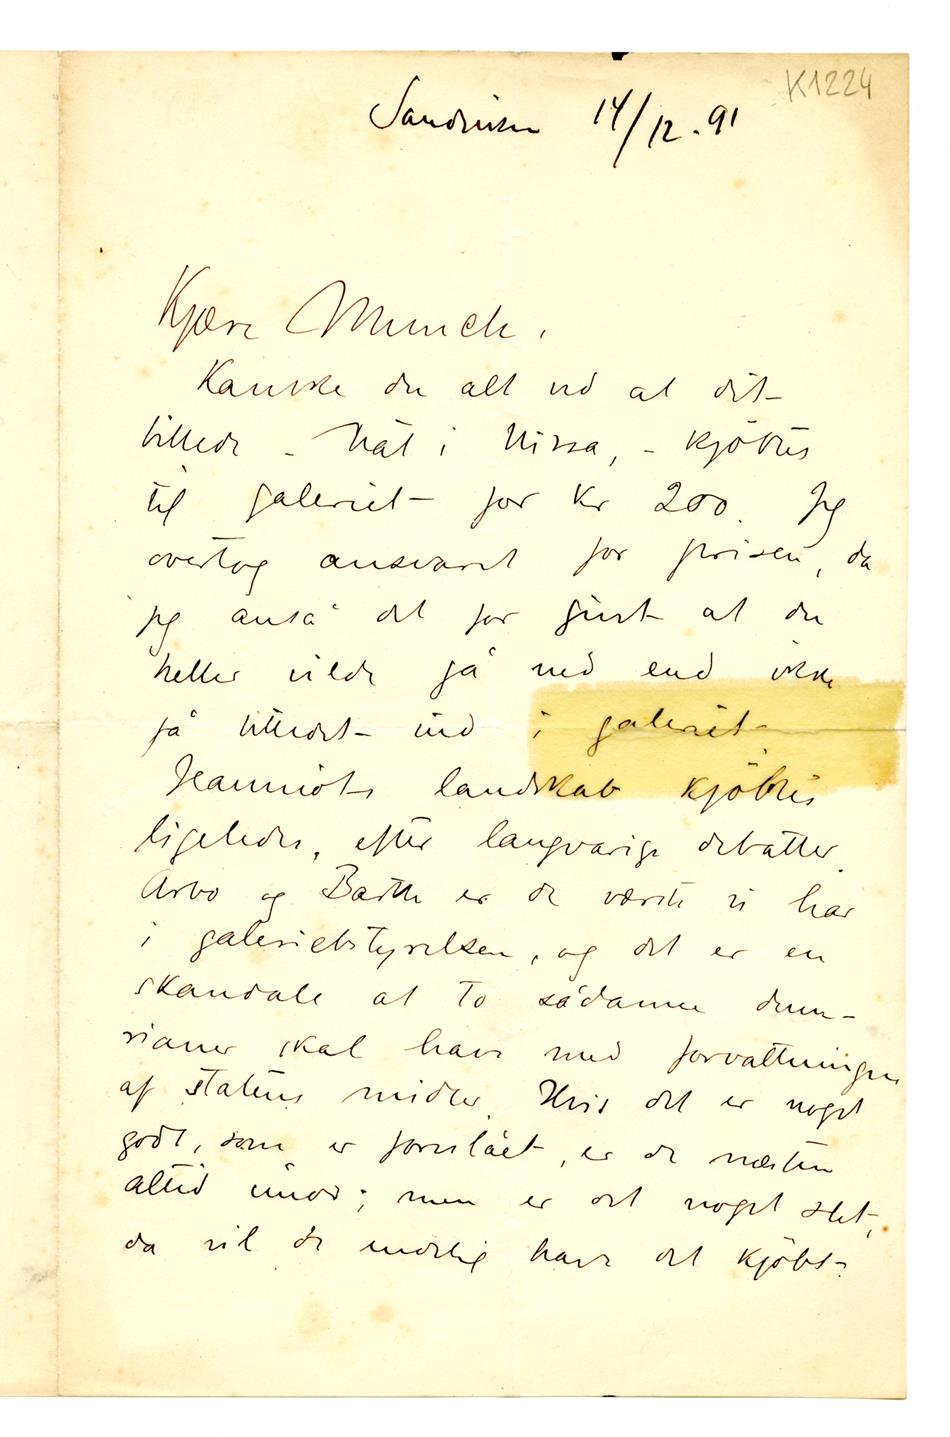 K1224
Sandviken 14/12. 91
Kjære Munch.
Kanske du alt ved at dit
billede - Nat i Nizza, - kjöbtes
til galeriet for Kr 200. Jeg
overtog ansvaret for prisen, da
jeg anså det for givet at du
heller vilde gå ned end ikke
få billedet ind i galeriet
Jeanniots landskab kjöbtes
ligeledes, efter langvarige debatter.
Arbo og Barth er de værste vi har
i galeriebstyrelsen, og det er en
skandale at to sådanne dum-
rianer skal have med forvaltningen
af statens midler. Hvis det er noget
godt, som er foreslået, er de næsten
altid imod; men er det noget slet,
da vil de endelig have det kjöbt.